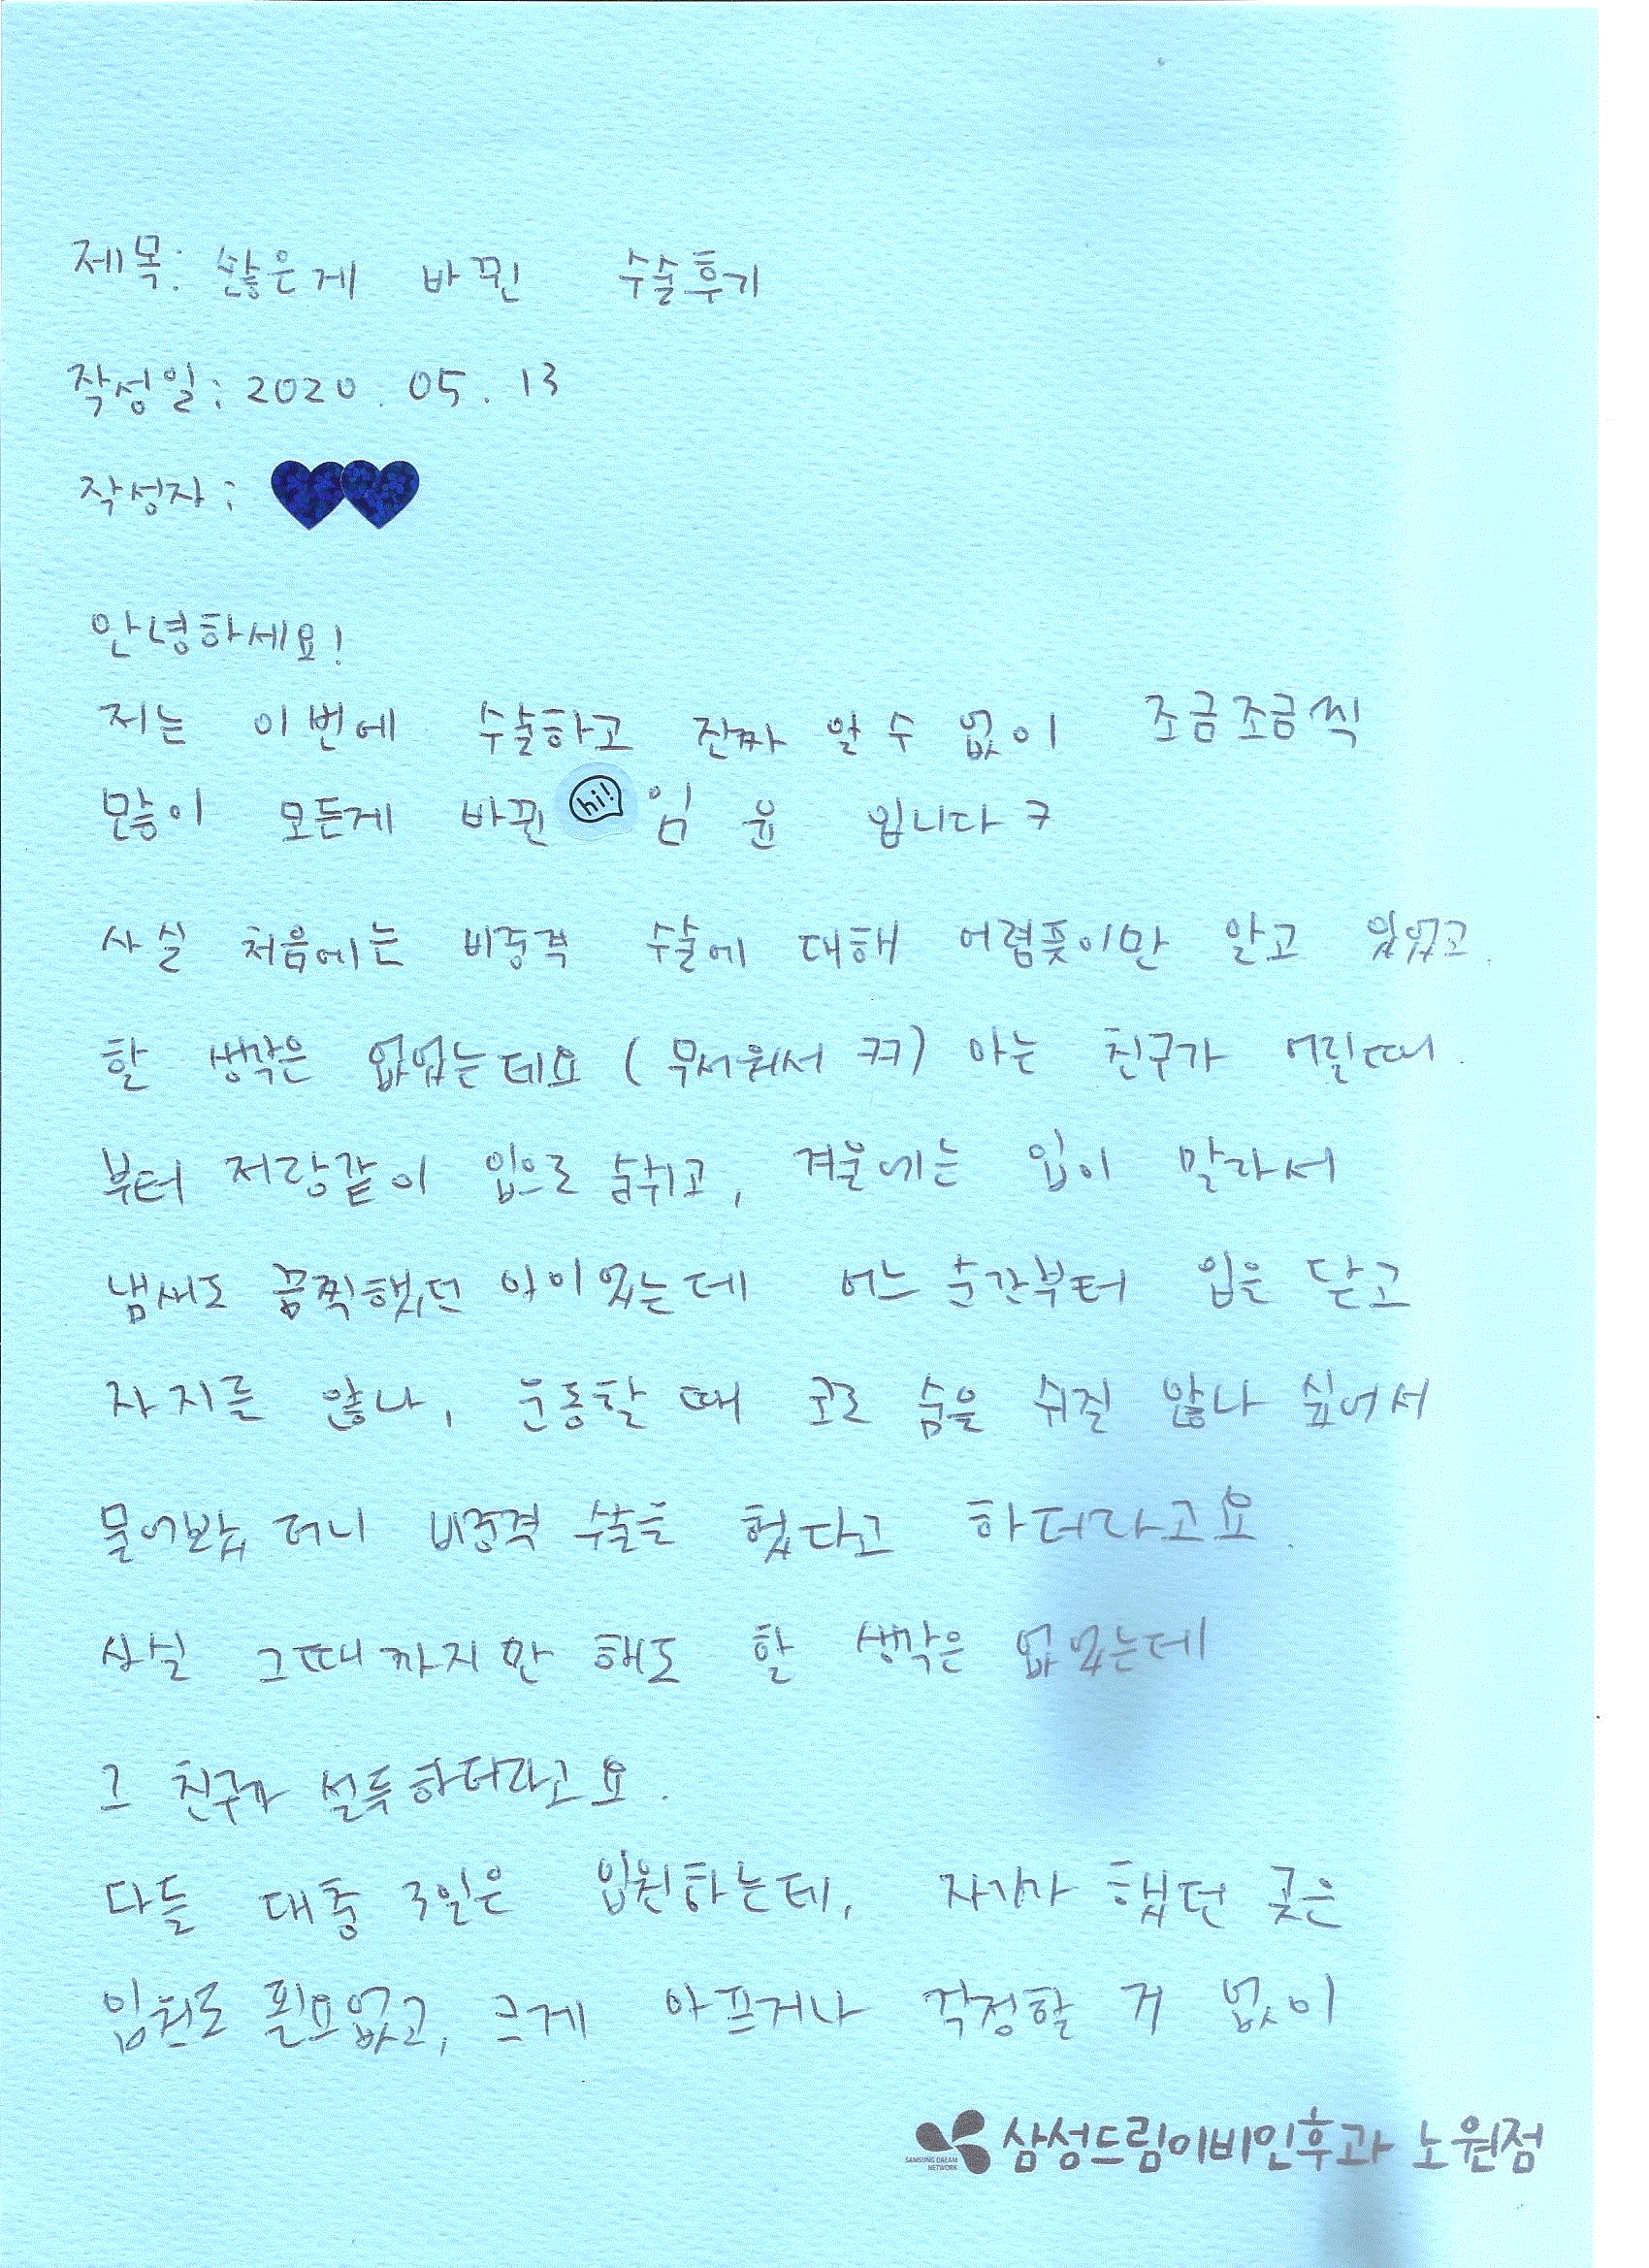 제목: 많은게 바뀐 수술후기
작성일: 2020. 05. 13
작성자:
안녕하세요!
저는 이번에 수술하고 진짜 알 수 없이 조금조금씩
많이 모든게 바뀐 hi! 임 윤 입니다ㅋ
사실 처음에는 비중격 수술에 대해 어렴풋이만 알고 있었고
할 생각은 없었는데요 (무서워서 ㅋㅋ) 아는 친구가 어릴때
부터 저랑같이 입으로 숨쉬고, 겨울에는 입이 말라서
냄새도 끔찍했던 아이였는데 어느 순간부터 입을 닫고
자지를 않나, 운동할 때 코로 숨을 쉬질 않나 싶어서
물어봤더니 비중격 수술을 했다고 하더라고요.
사실 그때까지만 해도 할 생각은 없었는데
그 친구가 설득하더라고요.
다들 대충 3일은 입원하는데, 자기가 했던 곳은
입원도 필요없고, 크게 아프거나 걱정할 거 없이
SAMSUNG DREAM NETWORK 삼성드림이비인후과 노원점